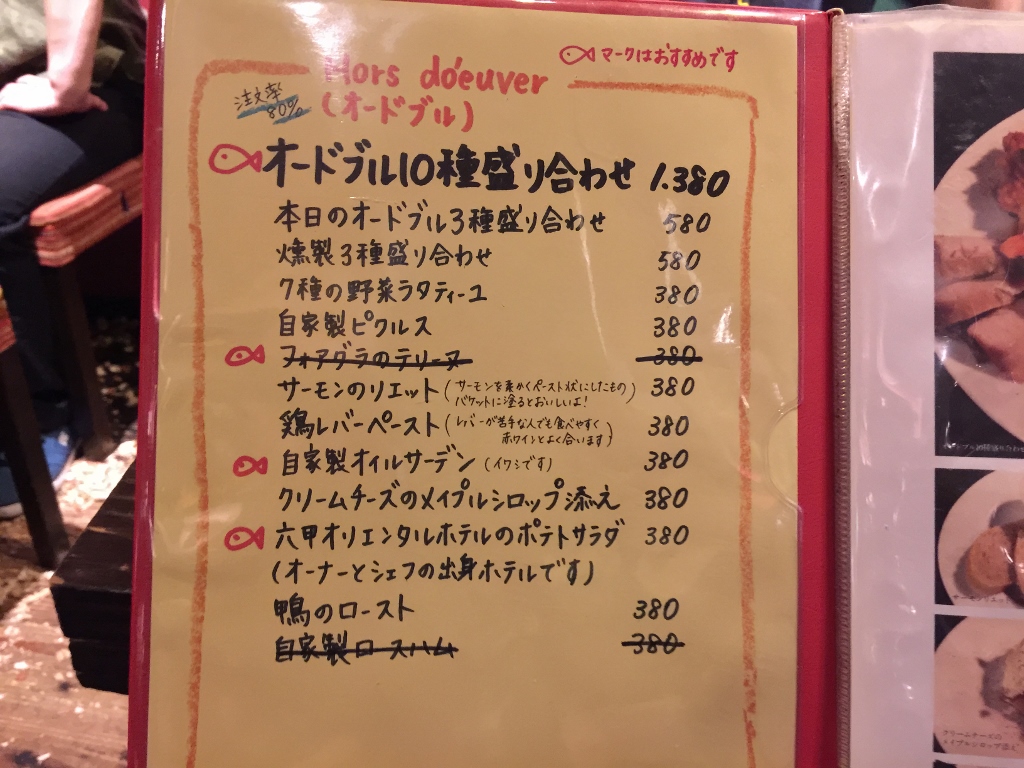 マークはおすすめです
Hors dóeuver
(オードブル)
注文率
80%
オードブル10種盛り合わせ 1.380
本日のオードブル3種盛り合わせ 580
燻製3種盛り合わせ 580
7種の野菜ラタティーユ 380
自家製ピクルス 380
フォアグラのテリーヌ 380
サーモンのリエット (サーモンを柔かくペースト状にしたもの 380
バケットに塗るとおいしいよ!)
鶏レバーペースト (レバーが苦手な人でも食べやすく 380
赤ワインとよく合います)
自家製オイルサーデン (イワシです) 380
クリームチーズのメイプルシロップ添え 380
六甲オリエンタルホテルのポテトサラダ 380
(オーナーとシェフの出身ホテルです)
鴨のロースト 380
自家製ロースハム 380
クリームチーズの
メイプルシロップ添え